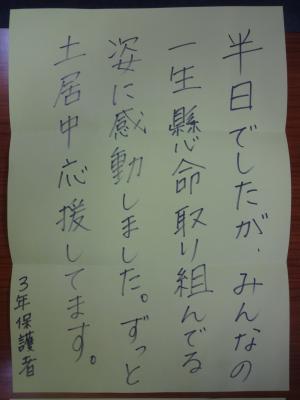 半日でしたが、みんなの
一生懸命取り組んでる
姿に感動しました。ずっと
土居中応援してます。
3年保護者